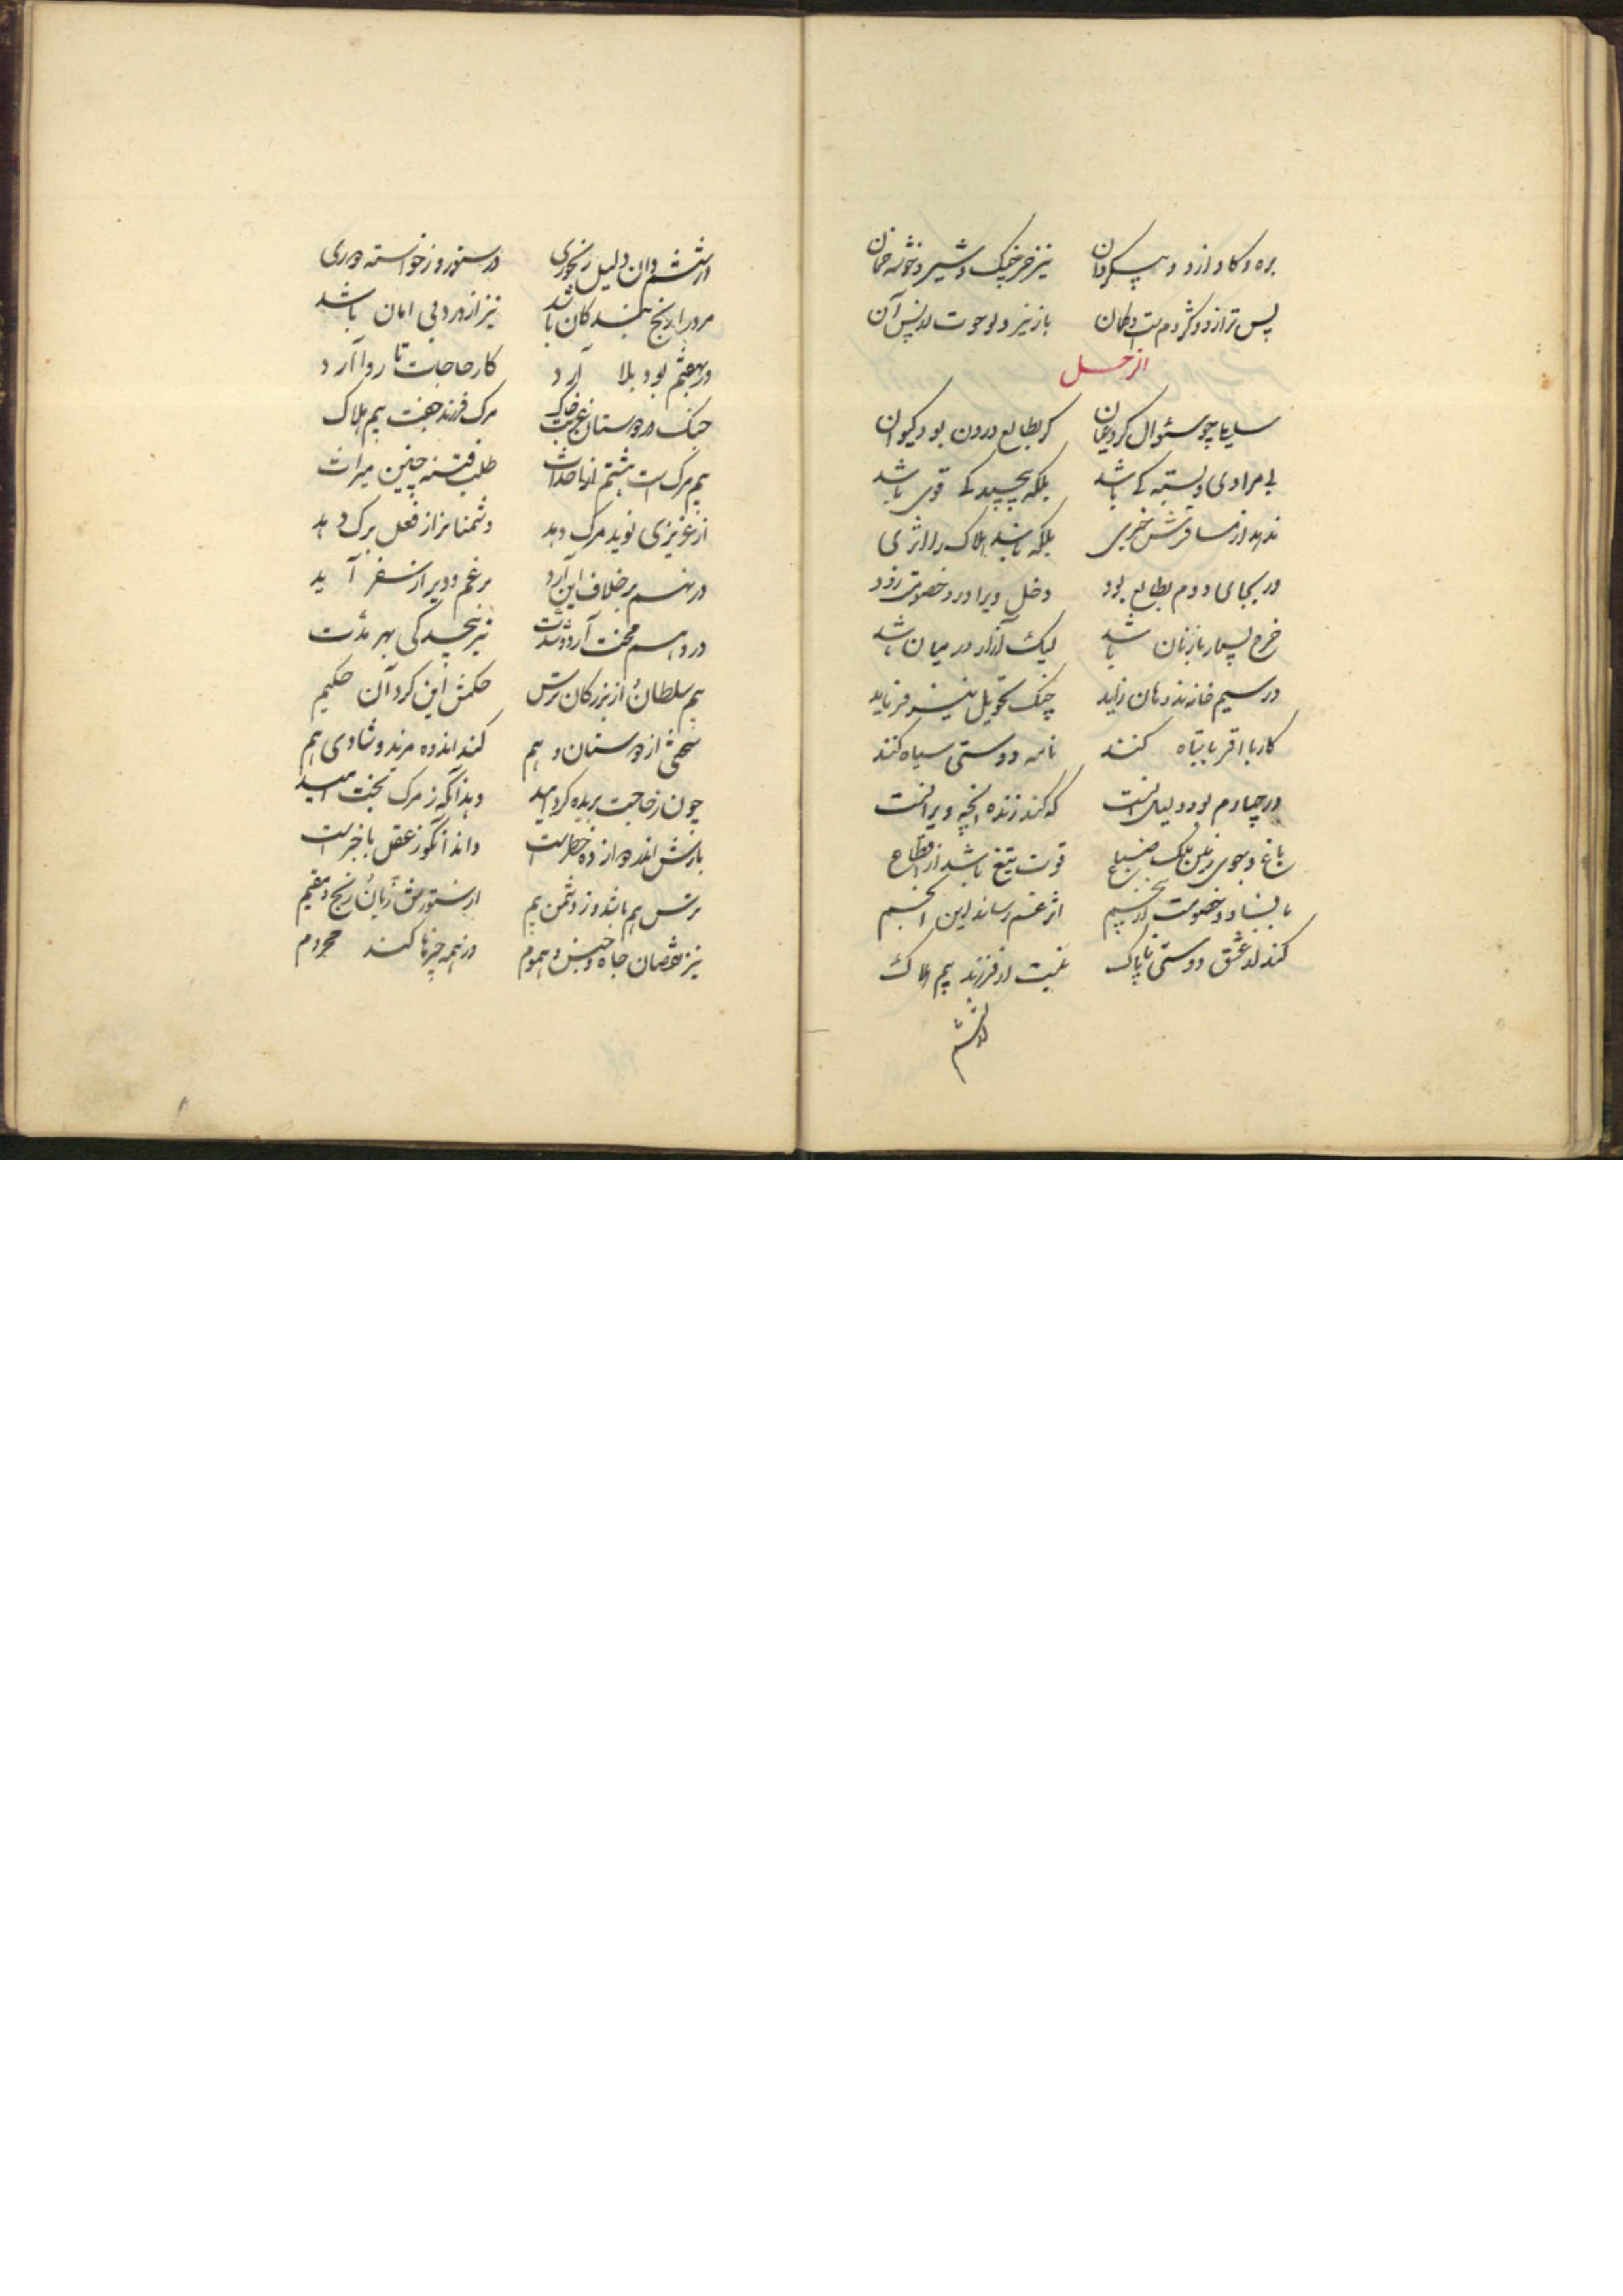 بره و کاو از دو پیکر دان نیز خرچنک و شیر و خوشه خوان
پس ترازو و کژدم کمان باز نیز دلو حوت از پس آن
از زحل
سلیما چو سئوال کرد عیان کر بطالع درون بود کیوان
بی مرادی و بستیکے باشد بلکه پیچیدکے قوی باشد
ندهد از مسافرش خبری بلکه باشد هلاک را اثری
ور بجای دوم بطالع بود دخل ویرا در خصومت زود
خرج بسیار با زنان باشد لیک آزار در میان باشد
در سیم خانه زاید جنک تحویل نیز فرماید
کار با اقربا تباه کنند نامه دوستی سیاه کنند
در چهارم بود دلیل آنست که کند زنده آنچه ویرانست
باغ و جوی زمین ملک ضیاع قوت تیغ باشد از اقطاع
با فساد و خصومت از پنجم اثر غم رساند این انجم
کند از عشق دوستی ناپاک غیبت از فرزند بیم هلاک
از ششم
از ششم دان دلیل رنجوری در ستور و ز خواسته دوری
مرورا رنج بندکان باشد نیز از درد بی امان باشد
در بهفتم بود بلا آرد کار حاجات نا روا آرد
جنک دوستان غربت خاک مرک فرزند جفت بیم هلاک
بیم مرک است هشتم از احداث طلب فتنه چنین میراث
از عزیزی نوید مرک دهد دشمنانرا ز فعل برک دهد
در نهم بر خلاف این آرد پر غم و دیر از سفر آید
در دهم محنت آرد و شدت نیز پیچیدکی بهر مدت
بیم سلطان و از بزرکان ترس حکمش این کرد آن حکیم
سختی از دوستان و هم کند اندوه مرند و شادی هم
چون ز حاجت بریده کرد امید وندانکه ز مرک تخت امید
بازش اندر دوازده خطرست داند آنکو ز عقل با خبرست
ترس هم باشد و ز دشمن بیم از ستورش زیان و رنج مقیم
نیز نقصان جاه و حبس و هموم وز همه چیزها کند محروم